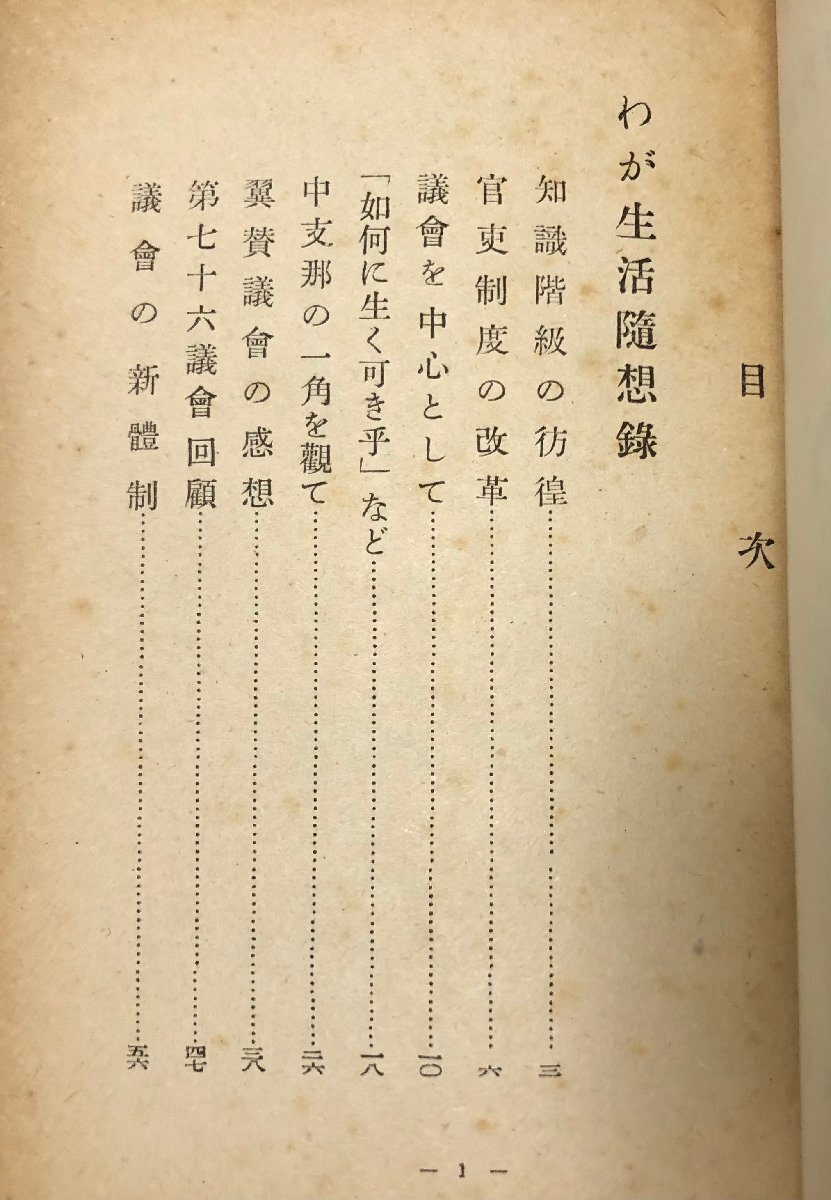 目次
わが生活隨想錄
知識階級の彷徨……………………三
官吏制度の改革……………………六
議會を中心として……………………一〇
「如何に生く可き乎」など……………………一八
中支那の一角を觀て……………………二六
翼賛議會の感想……………………三八
第七十六議會回顧……………………四七
議會の新體制……………………五六
— 1 —